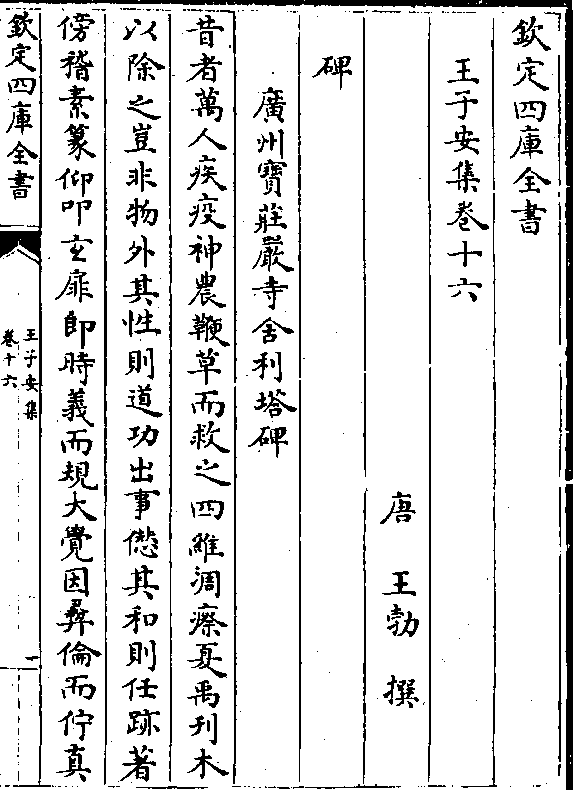 欽定四庫全書
王子安集卷十六
唐 王勃 撰
碑
廣州寶莊嚴寺舍利塔碑
昔者萬人疾疫神農鞭草而救之四維凋瘵夏禹刋木
以除之豈非物外其性則道功出事愆其和則任跡著
傍稽素篆仰叩玄扉郎時義而規大覺因彛倫而佇真
欽定四庫全書
王子安集
卷十六
一